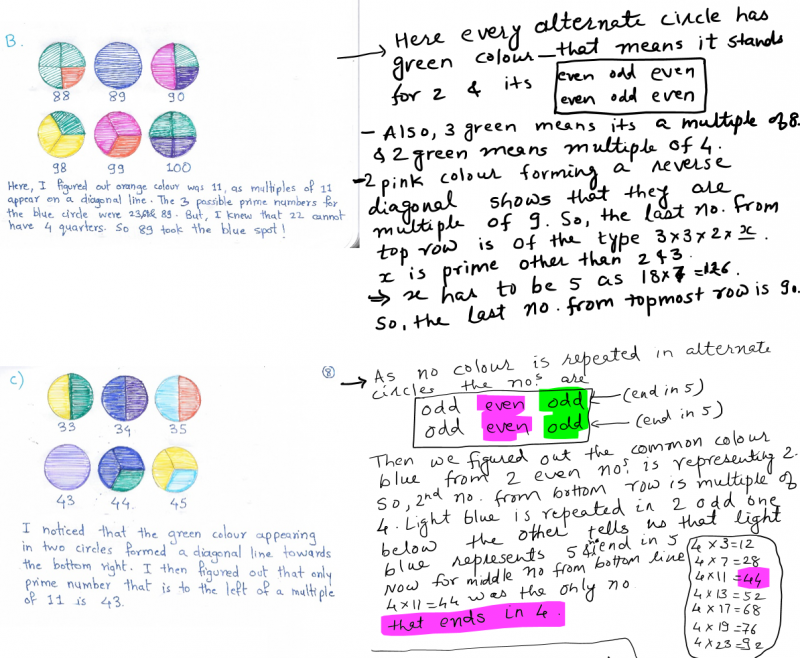 B.
88 89 90
98 99 100
Here, I figured out orange colour was 11, as multiples of 11
appear on a diagonal line. The 3 possible prime numbers for
the blue circle were 23, 89. But, I knew that 22 cannot
have 4 quarters. So 89 took the blue spot!
→ Here every alternate circle has
green colour — that means it stands
for 2 & its
even odd even
even odd even
- Also, 3 green means its a multiple of 8.
& 2 green means multiple of 4.
- 2 pink colour forming a reverse
diagonal shows that they are
multiple of 9. So, the last no. from
top row is of the type 3×3×2×x.
x is prime other than 2 & 3.
→ x has to be 5 as 18×7=126.
So, the last no. from topmost row is 90.
c)
33 34 35
43 44 45
I noticed that the green colour appearing
in two circles formed a diagonal line towards
the bottom right. I then figured out that only
prime number that is to the left of a multiple
of 11 is 43.
⑧
→ As no colour is repeated in alternate
circles the no.s are
odd even odd ← (end in 5)
odd even odd ← (end in 5)
Then we figured out the common colour
blue from 2 even no.s is representing 2.
So, 2nd no. from bottom row is multiple of
4. Light blue is repeated in 2 odd one
below the other tells us that light
blue represents 5 & end in 5
Now for middle no from bottom line
4×11=44 was the only no
that ends in 4.
4×3=12
4×7=28
4×11=44
4×13=52
4×17=68
4×19=76
4×23=92